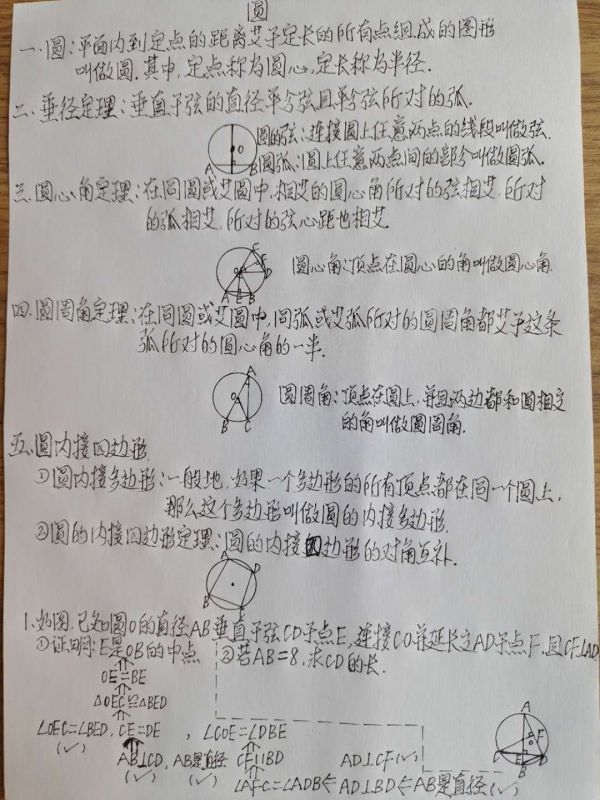 圆
一.圆:平面内到定点的距离等于定长的所有点组成的图形
叫做圆.其中,定点称为圆心,定长称为半径.
二.垂径定理:垂直于弦的直径平分弦且平分弦所对的弧.
圆的弦:连接圆上任意两点的线段叫做弦.
圆弧:圆上任意两点间的部分叫做圆弧.
O
A B
三.圆心角定理:在同圆或等圆中,相等的圆心角所对的弦相等,所对
的弧相等,所对的弦心距也相等.
圆心角:顶点在圆心的角叫做圆心角.
A E B
四.圆周角定理:在同圆或等圆中,同弧或等弧所对的圆周角都等于这条
弧所对的圆心角的一半.
A
圆周角:顶点在圆上,并且两边都和圆相交
的角叫做圆周角.
B C
五.圆内接四边形
①圆内接多边形:一般地,如果一个多边形的所有顶点都在同一个圆上,
那么这个多边形叫做圆的内接多边形.
②圆的内接四边形定理:圆的内接四边形的对角互补.
A D
B C
1.如图,已知圆O的直径AB垂直于弦CD于点E,连接CO并延长交AD于点F,且CF⊥AD
①证明:E是OB的中点 ②若AB=8,求CD的长.
OE=BE
△OEC≌△BED
∠OEC=∠BED,CE=DE,∠COE=∠DBE
(√)
AB⊥CD,AB是直径 CF∥BD AD⊥CF(√)
(√) (√)
∠AFC=∠ADB⇐AD⊥BD⇐AB是直径(√)
A
O F
C E D
B